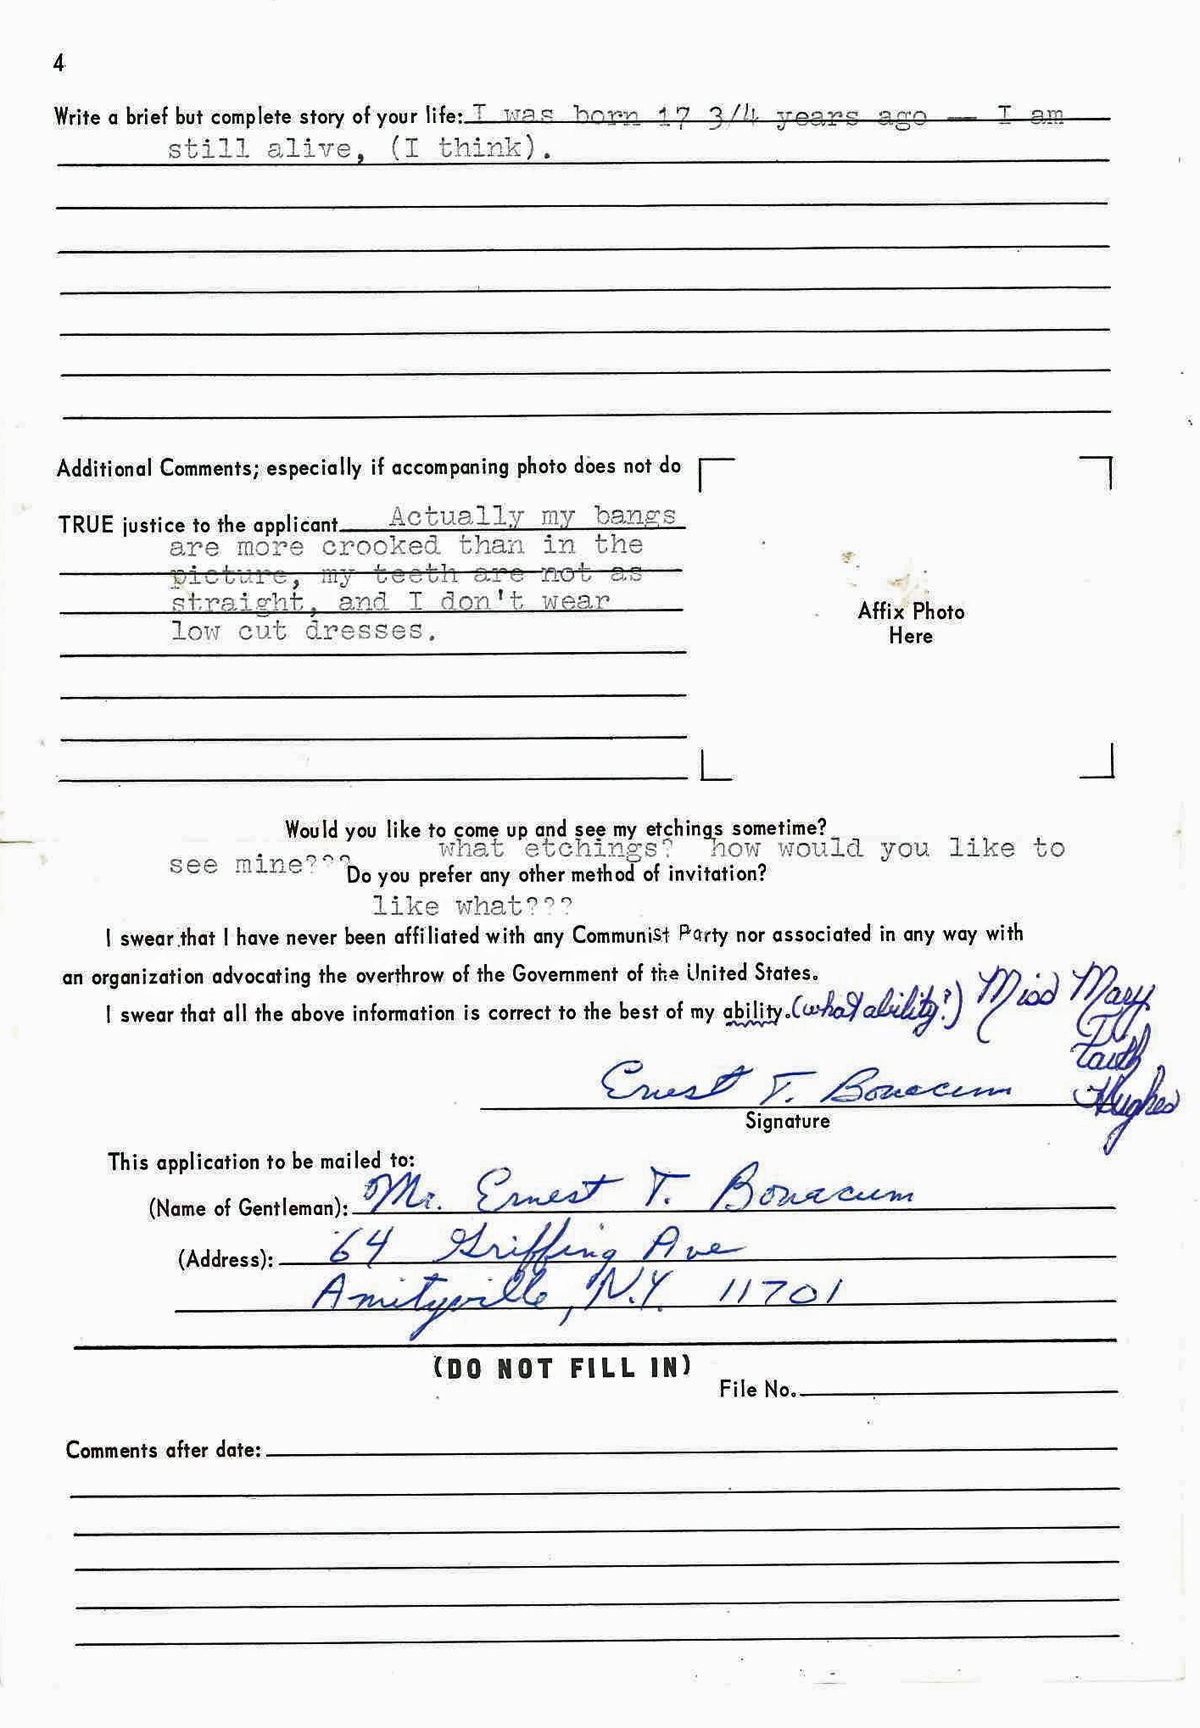 4
Write a brief but complete story of your life: I was born 17 3/4 years ago — I am
still alive, (I think).
Additional Comments; especially if accompaning photo does not do
TRUE justice to the applicant Actually my bangs
are more crooked than in the
picture, my teeth are not as
straight, and I don't wear
low cut dresses.
Affix Photo
Here
Would you like to come up and see my etchings sometime?
what etchings? how would you like to
see mine???
Do you prefer any other method of invitation?
like what???
I swear that I have never been affiliated with any Communist Party nor associated in any way with
an organization advocating the overthrow of the Government of the United States.
I swear that all the above information is correct to the best of my ability. (what ability?) Miss Mary
Faith
Hughes
Ernest T. Bonacum
Signature
This application to be mailed to:
(Name of Gentleman): Mr. Ernest T. Bonacum
(Address): 64 Griffing Ave
Amityville, N.Y. 11701
(DO NOT FILL IN)
File No.
Comments after date: